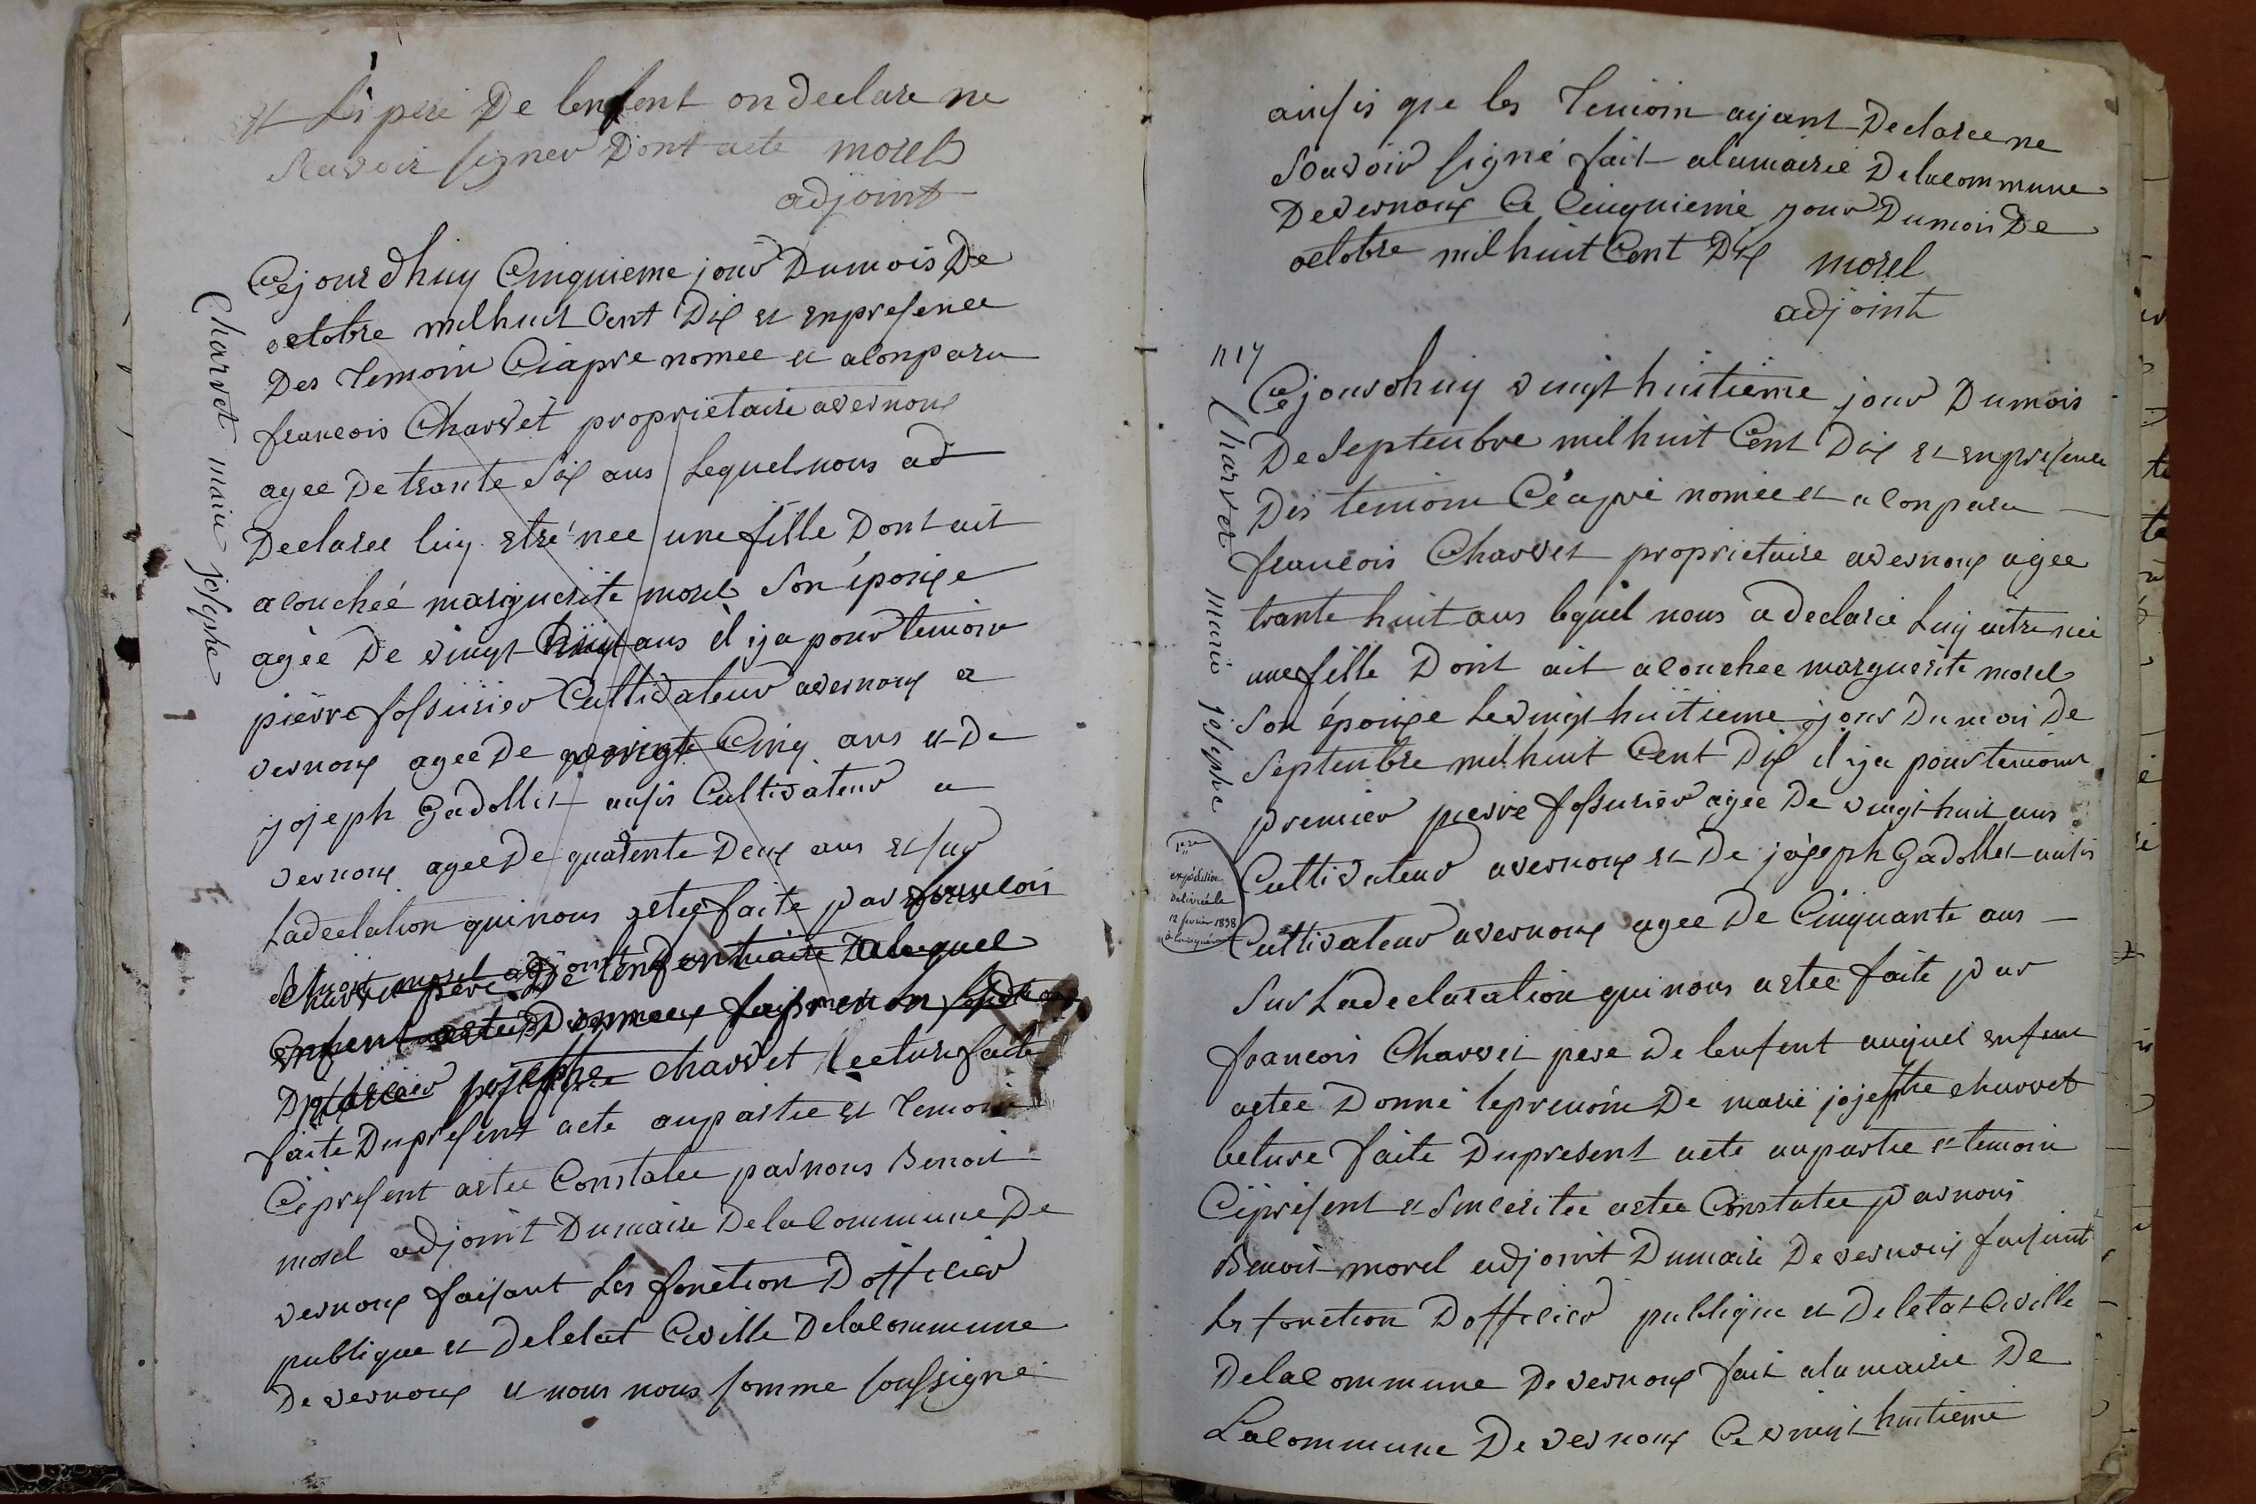 et Le pere De lenfent on declare ne
Scavoir signer Dont acte morel
adjoint
Charvet marie josephe
Cejourdhuy Cinquieme jour Dumois De
octobre milhuit Cent Dix et enpresence
Des temoin Ciapre nomee et aConparu
francois Charvet proprietaire avernoux
agee De trante Six ans Lequel nous ad
Declaree luy etre nee une fille Dont ait
acouchée marguerite morel Son épouse
agèe De vingt huit ans il ya pour temoin
pierre fossurier Cultivateur avernoux a
vernoux agee De vingt Cinq ans et De
joseph Gadollet ausis Cultivateur a
vernoux agee De quatente Deux ans et sur
Ladeclation qui nous ete faite par francois
Charvet pere De lenfent
enfent Donnee le prenom
josephe charvet lecture faite
faite Dupresent acte aupartie et temoin
Cipresent astee Constatee parnous Benoit
morel adjoint Dumaire DelaCommune De
vernoux faisant Les fonction Dofficier
publique et Deletat Civille Delacommune
De vernoux et nous nous somme soussigne
ainsis que les temoin ayant Declaree ne
Scavoir signé fait alamairie Delacommune
Devernoux Ce Cinquieme jour Dumois De
octobre milhuit Cent Dix morel
adjoint
n 17
Charvet marie josephe
Cejourdhuy vingt huitieme jour Dumois
De Septeubre milhuit Cent Dix et enpresence
Des temoin Ciapre nomée et aConparu
francois Charvet proprietaire avernoux agee
trante huit ans lequel nous a declarée Luy aitre nee
une fille Dont ait acouchee marguerite morel
Son épouse Levingt huitieme jour Dumois De
Septenbre milhuit Cent Dix il ya pour temoin
premier pierre fossurier agée De vingt huit ans
Cultivateur avernoux et De joseph Gadollet ausis
Cultivateur avernoux agee De Cinquante ans
1ere
expédition
delivrée le
12 fevrier 1838
Sur Ladeclaration qui nous astee faite par
francois Charvet pere De lenfent auquel enfent
astee Donné leprenom De marie josephe charvet
lecture faite Dupresent acte aupartie et temoin
Cipresent et Sinceritee astee Constatee parnous
Benoit morel adjoint Dumaire De vernoux faisant
Les fonction Dofficier publique et Deletat Civille
Delacommune De vernoux fait alamairie De
Lacommune De vernoux Ce vingt huitieme